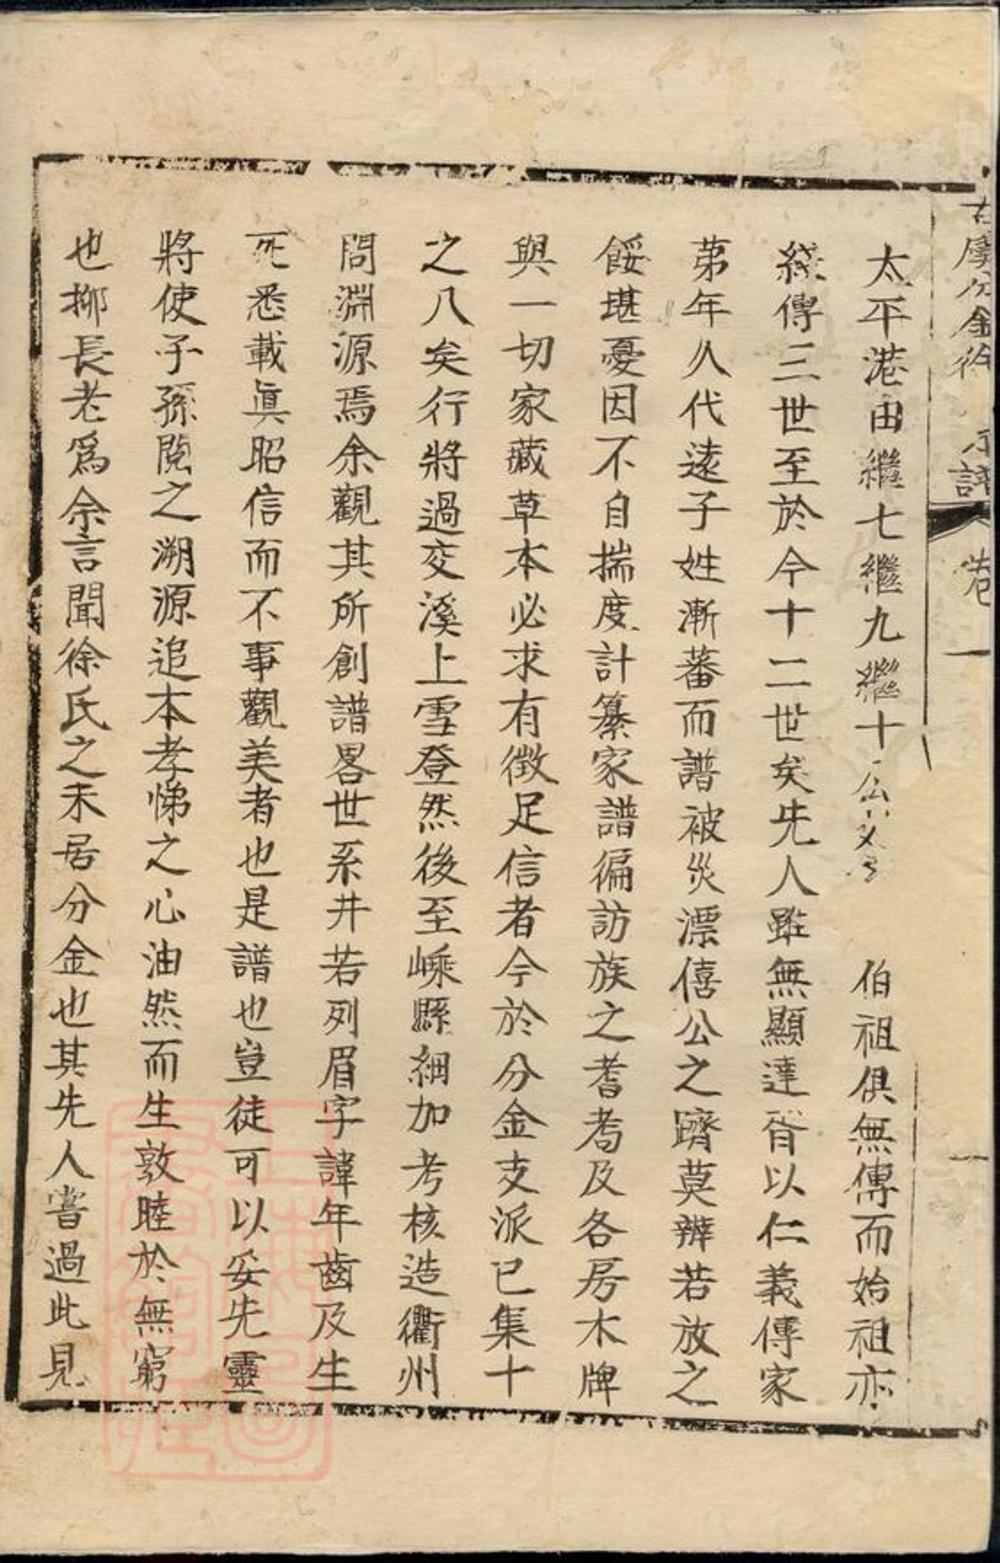 太平港由繼七繼九繼十公 伯祖俱無傳而始祖亦
綫傳三世至於今十二世矣先人雖無顯達胥以仁義傳家
苐年久代遠子姓漸蕃而譜被災漂僖公之躋莫辨若放之
餒堪憂因不自揣度計纂家譜徧訪族之耆耇及各房木牌
與一切家藏草本必求有徵足信者今於分金支派已集十
之八矣行將過交溪上雪登然後至嵊縣細加考核造衢州
問淵源焉余觀其所創譜畧世系井若列眉字諱年齒及生
死悉載眞昭信而不事觀美者也是譜也豈徒可以妥先靈
將使子孫閱之溯源追本孝悌之心油然而生敦睦於無窮
也抑長老爲余言聞徐氏之未居分金也其先人嘗過此見
分金徐 譜 卷一
一